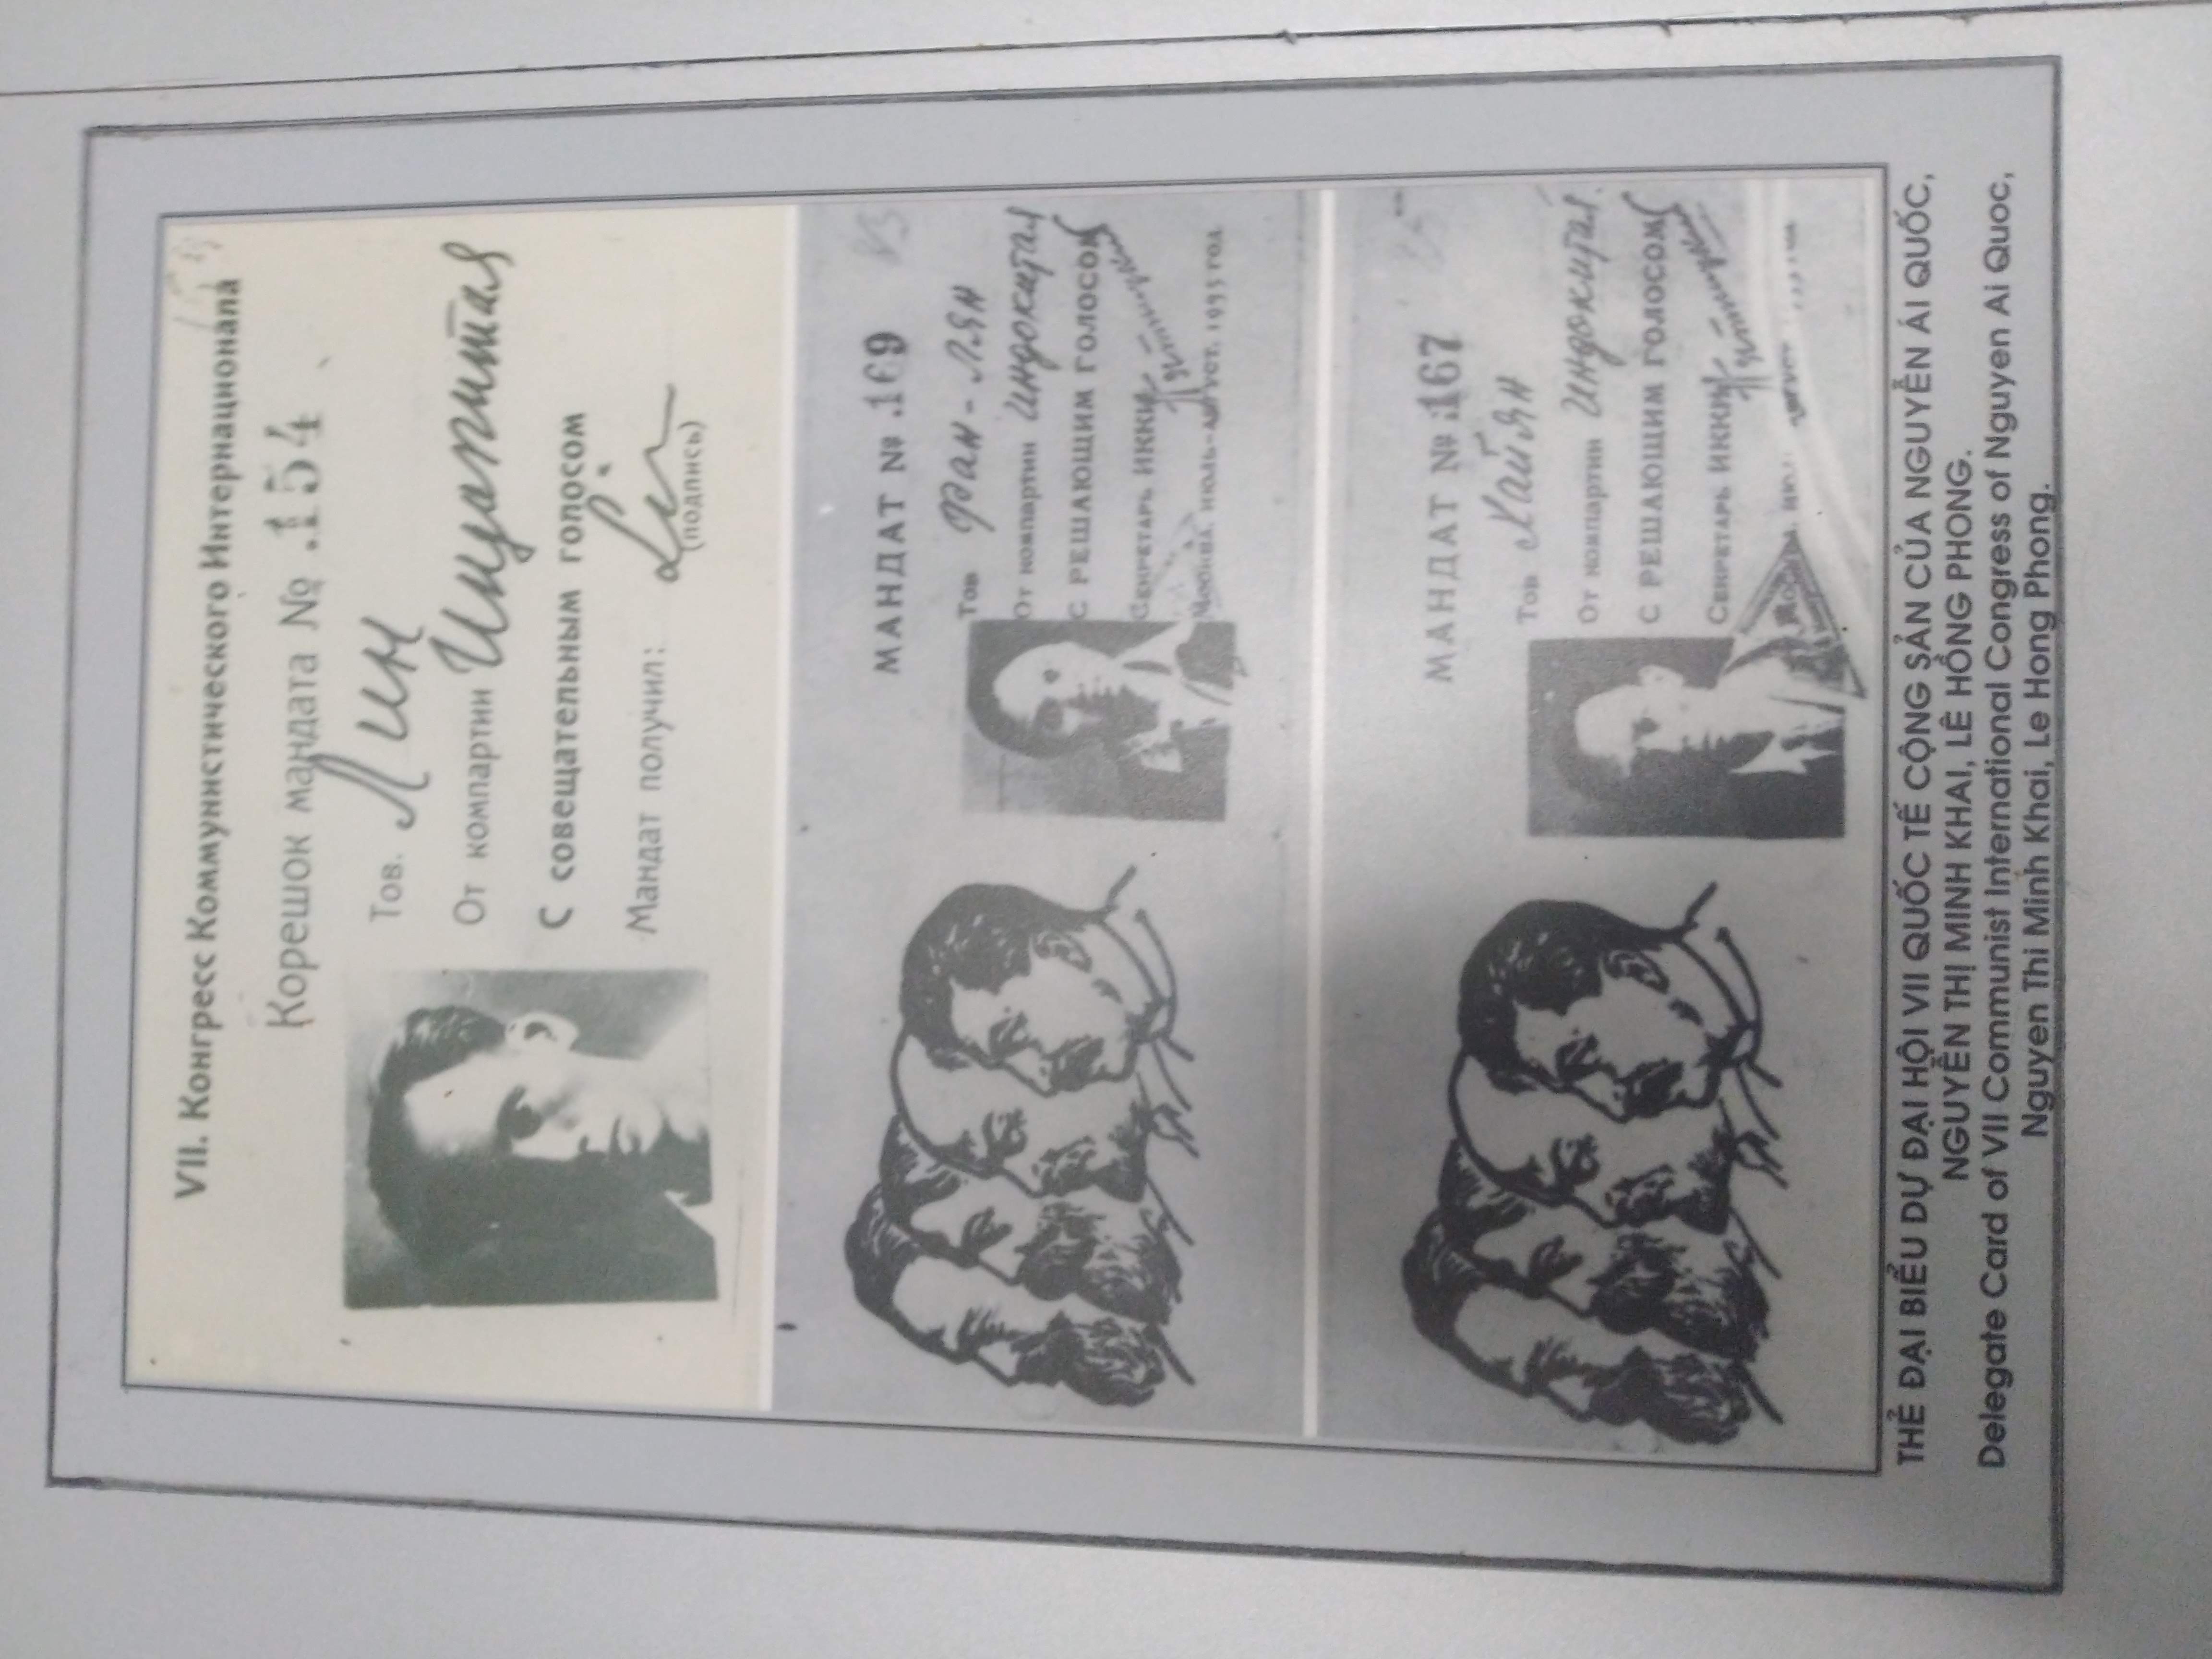 VII. Конгресс Коммунистического Интернационала
Корешок мандата № .154
Тов. Лин
От компартии Индокитая
С совещательным голосом
Мандат получил: Lin
(подпись)
МАНДАТ № .169
Тов Фан-лян
От компартии Индокитая
С РЕШАЮЩИМ ГОЛОСОМ
СЕКРЕТАРЬ ИККИ
МОСКВА, ИЮЛЬ-АВГУСТ, 1935 ГОД
МАНДАТ № .167
Тов Хайян
От компартии Индокитая
С РЕШАЮЩИМ ГОЛОСОМ
СЕКРЕТАРЬ ИККИ
МОСКВА, АВГУСТ
THẺ ĐẠI BIỂU DỰ ĐẠI HỘI VII QUỐC TẾ CỘNG SẢN CỦA NGUYỄN ÁI QUỐC,
NGUYỄN THỊ MINH KHAI, LÊ HỒNG PHONG.
Delegate Card of VII Communist International Congress of Nguyen Ai Quoc,
Nguyen Thi Minh Khai, Le Hong Phong.